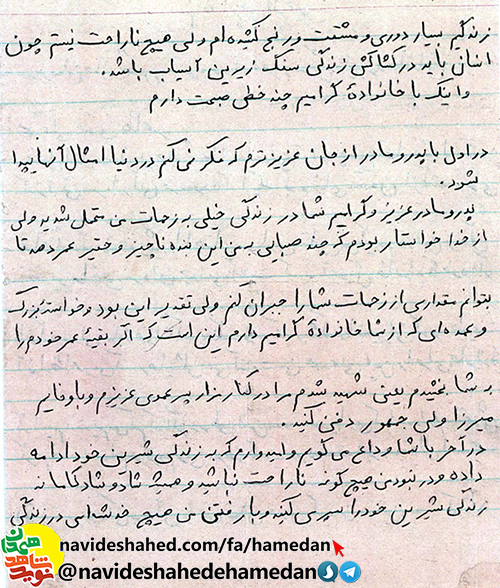 زندگیم بسیار دوری و مشقت و رنج کشیده ام ولی هیچ ناراحت نیستم چون
انسان باید در کشاکش زندگی سنگ زیرین آسیاب باشد.
و اینک با خانوادهٔ گرامیم چند خطی صحبت دارم
در اول با پدر و مادر از جان عزیزترم که فکر نمی کنم در دنیا امثال آنها پیدا
شود.
پدر و مادر عزیز و گرامیم شما در زندگی خیلی به زحمات من متحمل شدید ولی
از خدا خواستار بودم که چند صباحی به من این بنده ناچیز و حقیر عمر دهد تا
بتوانم مقداری از زحمات شما را جبران کنم ولی تقدیر این بود و خواسته بزرگ
و عمده ای که از شما خانوادهٔ گرامیم دارم این است که اگر بقیهٔ عمر خودم را
به شما بخشیدم یعنی شهید شدم مرا در کنار مزار پسر عموی عزیزم و باوفایم
میرزا ولی جمهور دفن کنید.
در آخر با شما وداع می گویم و امیدوارم که به زندگی شیرین خود ادامه
داده و در نبود من هیچ گونه ناراحت نباشید و همیشه شاد و شادکامانه
زندگی شیرین خود را سپری کنید و با رفتن من هیچ خدشه ای در زندگی
navideshahed.com/fa/hamedan
@navideshahedehamedan
نوید شاهد همدان